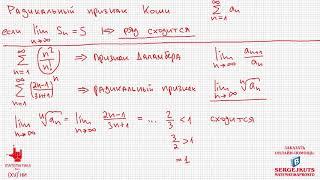 Радикальный признак Коши ∞ Σ n=1 aₙ
если lim n→∞ Sₙ = S ⟹ ряд сходится
∞ Σ n=1 (n²/n!) ⟹ признак Даламбера lim n→∞ aₙ₊₁/aₙ
∞ Σ n=1 (2n-1/3n+1)ⁿ ⟹ радикальный признак lim n→∞ ⁿ√aₙ
lim n→∞ ⁿ√aₙ = lim n→∞ 2n-1/3n+1 = ... 2/3 < 1 сходится
3/2 > 1
= 1
ЗАКАЗАТЬ
ОНЛАЙН-ПОМОЩЬ:
SERGEJKUTS